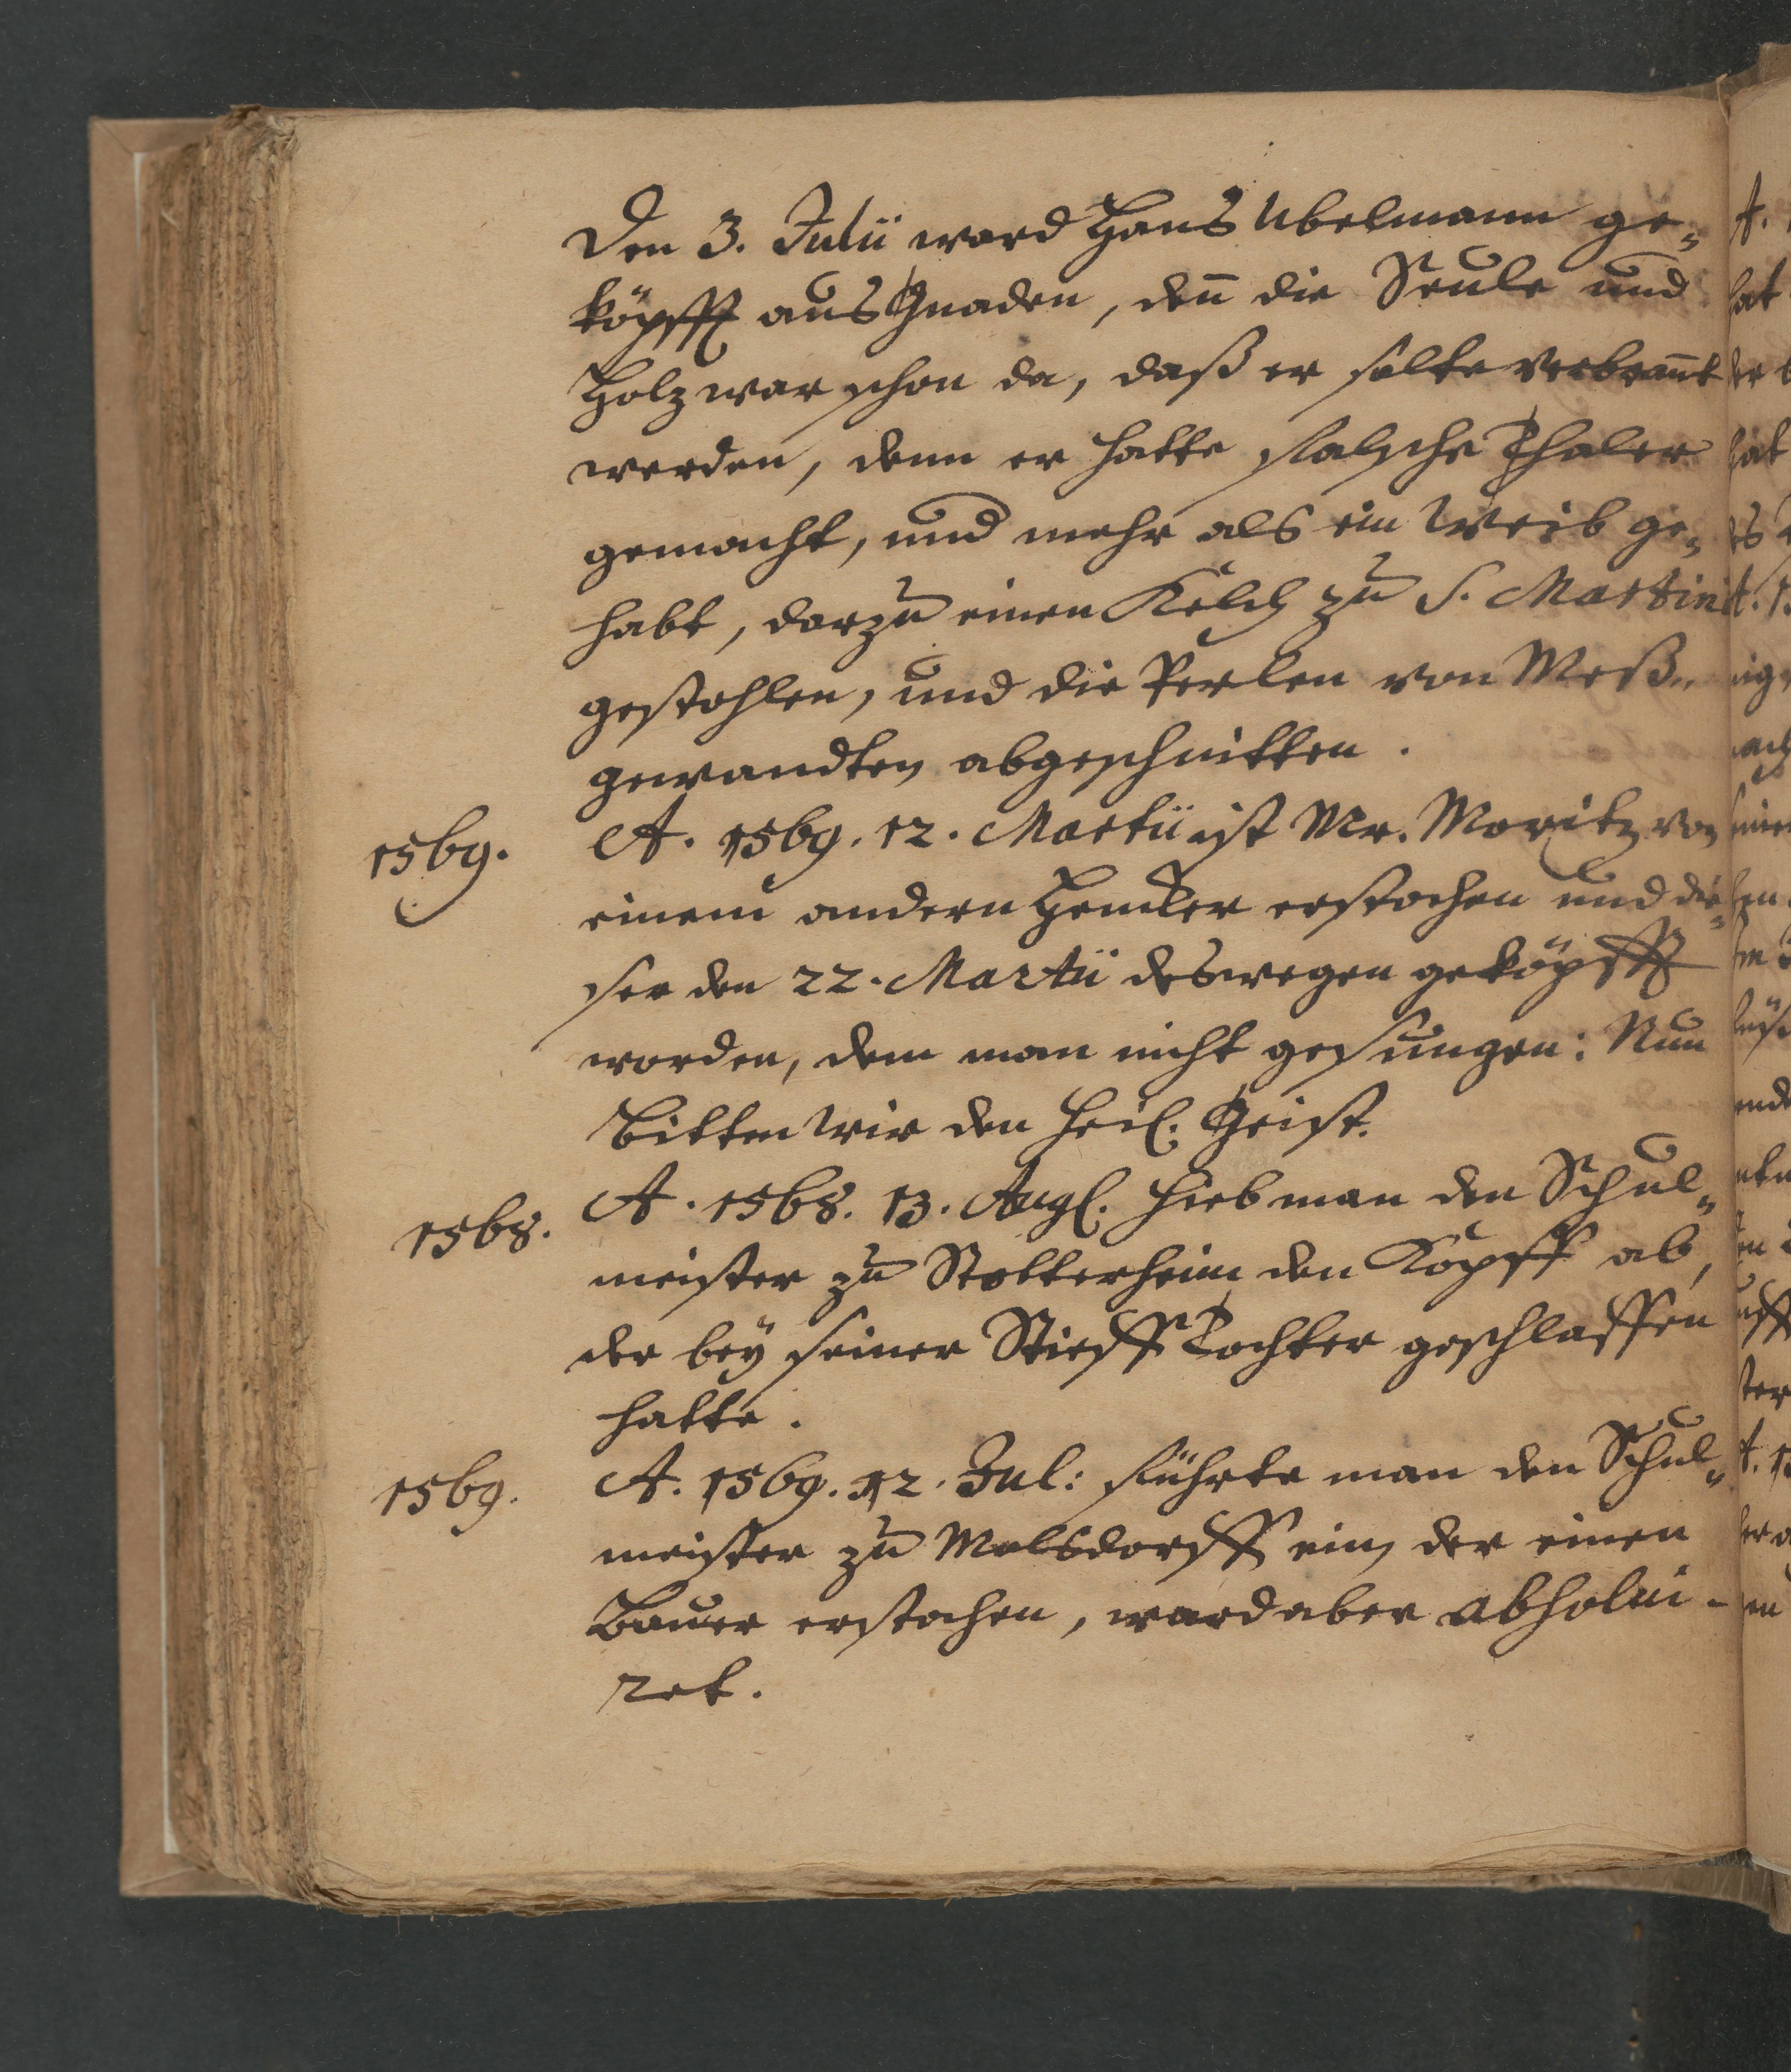 Den 3. Julii ward Hans Ubelmann ge„
köpfft aus Gnaden, deñ die Seule und
Holz war schon da, daß er solte verbrañt
werden, denn er hatte falsche Thaler
gemacht, und mehr als ein Weib ge„
habt, darzu einen Kelch zu S. Martini
gestohlen, und die Perlen von Meß„
gewandten abgeschnitten.
1569. A. 1569. 12. Martii ist Mr. Moritz von
einem andern Hencker erstochen und die„
ser den 22. Martii deswegen geköpfft
worden, dem man nicht gesungen: Nun
Bitten wir den Heil. Geist.
1568. A. 1568. 13. Aug. hieb man den Schul„
meister zu Stotterheim den Kopff ab,
der bey seiner Stieff Tochter geschlaffen
hatte.
1569. A. 1569. 12. Jul: führte man den Schul„
meister zu Molsdorff ein, der einen
Bauer erstochen, ward aber absolvi-
ret.